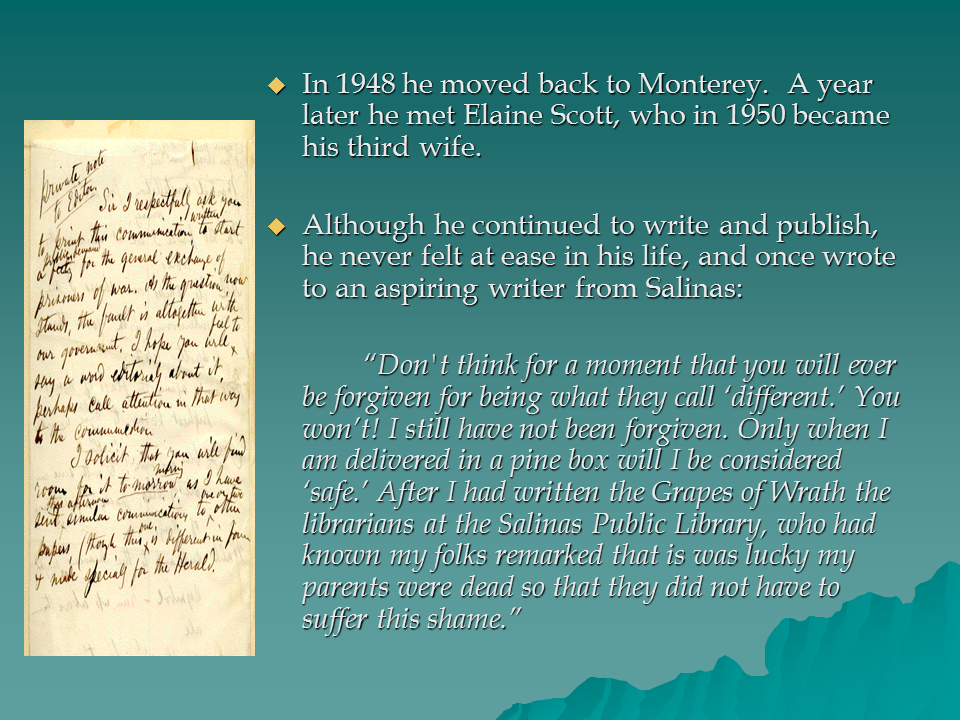 In 1948 he moved back to Monterey. A year
later he met Elaine Scott, who in 1950 became
his third wife.
Although he continued to write and publish,
he never felt at ease in his life, and once wrote
to an aspiring writer from Salinas:
“Don't think for a moment that you will ever
be forgiven for being what they call ‘different.’ You
won’t! I still have not been forgiven. Only when I
am delivered in a pine box will I be considered
‘safe.’ After I had written the Grapes of Wrath the
librarians at the Salinas Public Library, who had
known my folks remarked that is was lucky my
parents were dead so that they did not have to
suffer this shame.”
private note
to Editor
Sir I respectfully ask you
written
to print this communication, to start
for the general exchange of
prisoners of war. As the question now
stands, the fault is altogether with
our government. I hope you will feel to
say a word editorialy about it,
perhaps call attention in that way
to the communication
I solicit that you will find
morning
room for it to-morrow as I have
this afternoon one or two
sent similar communications to other
one
papers, (though this is different in form
& made specialy for the Herald.